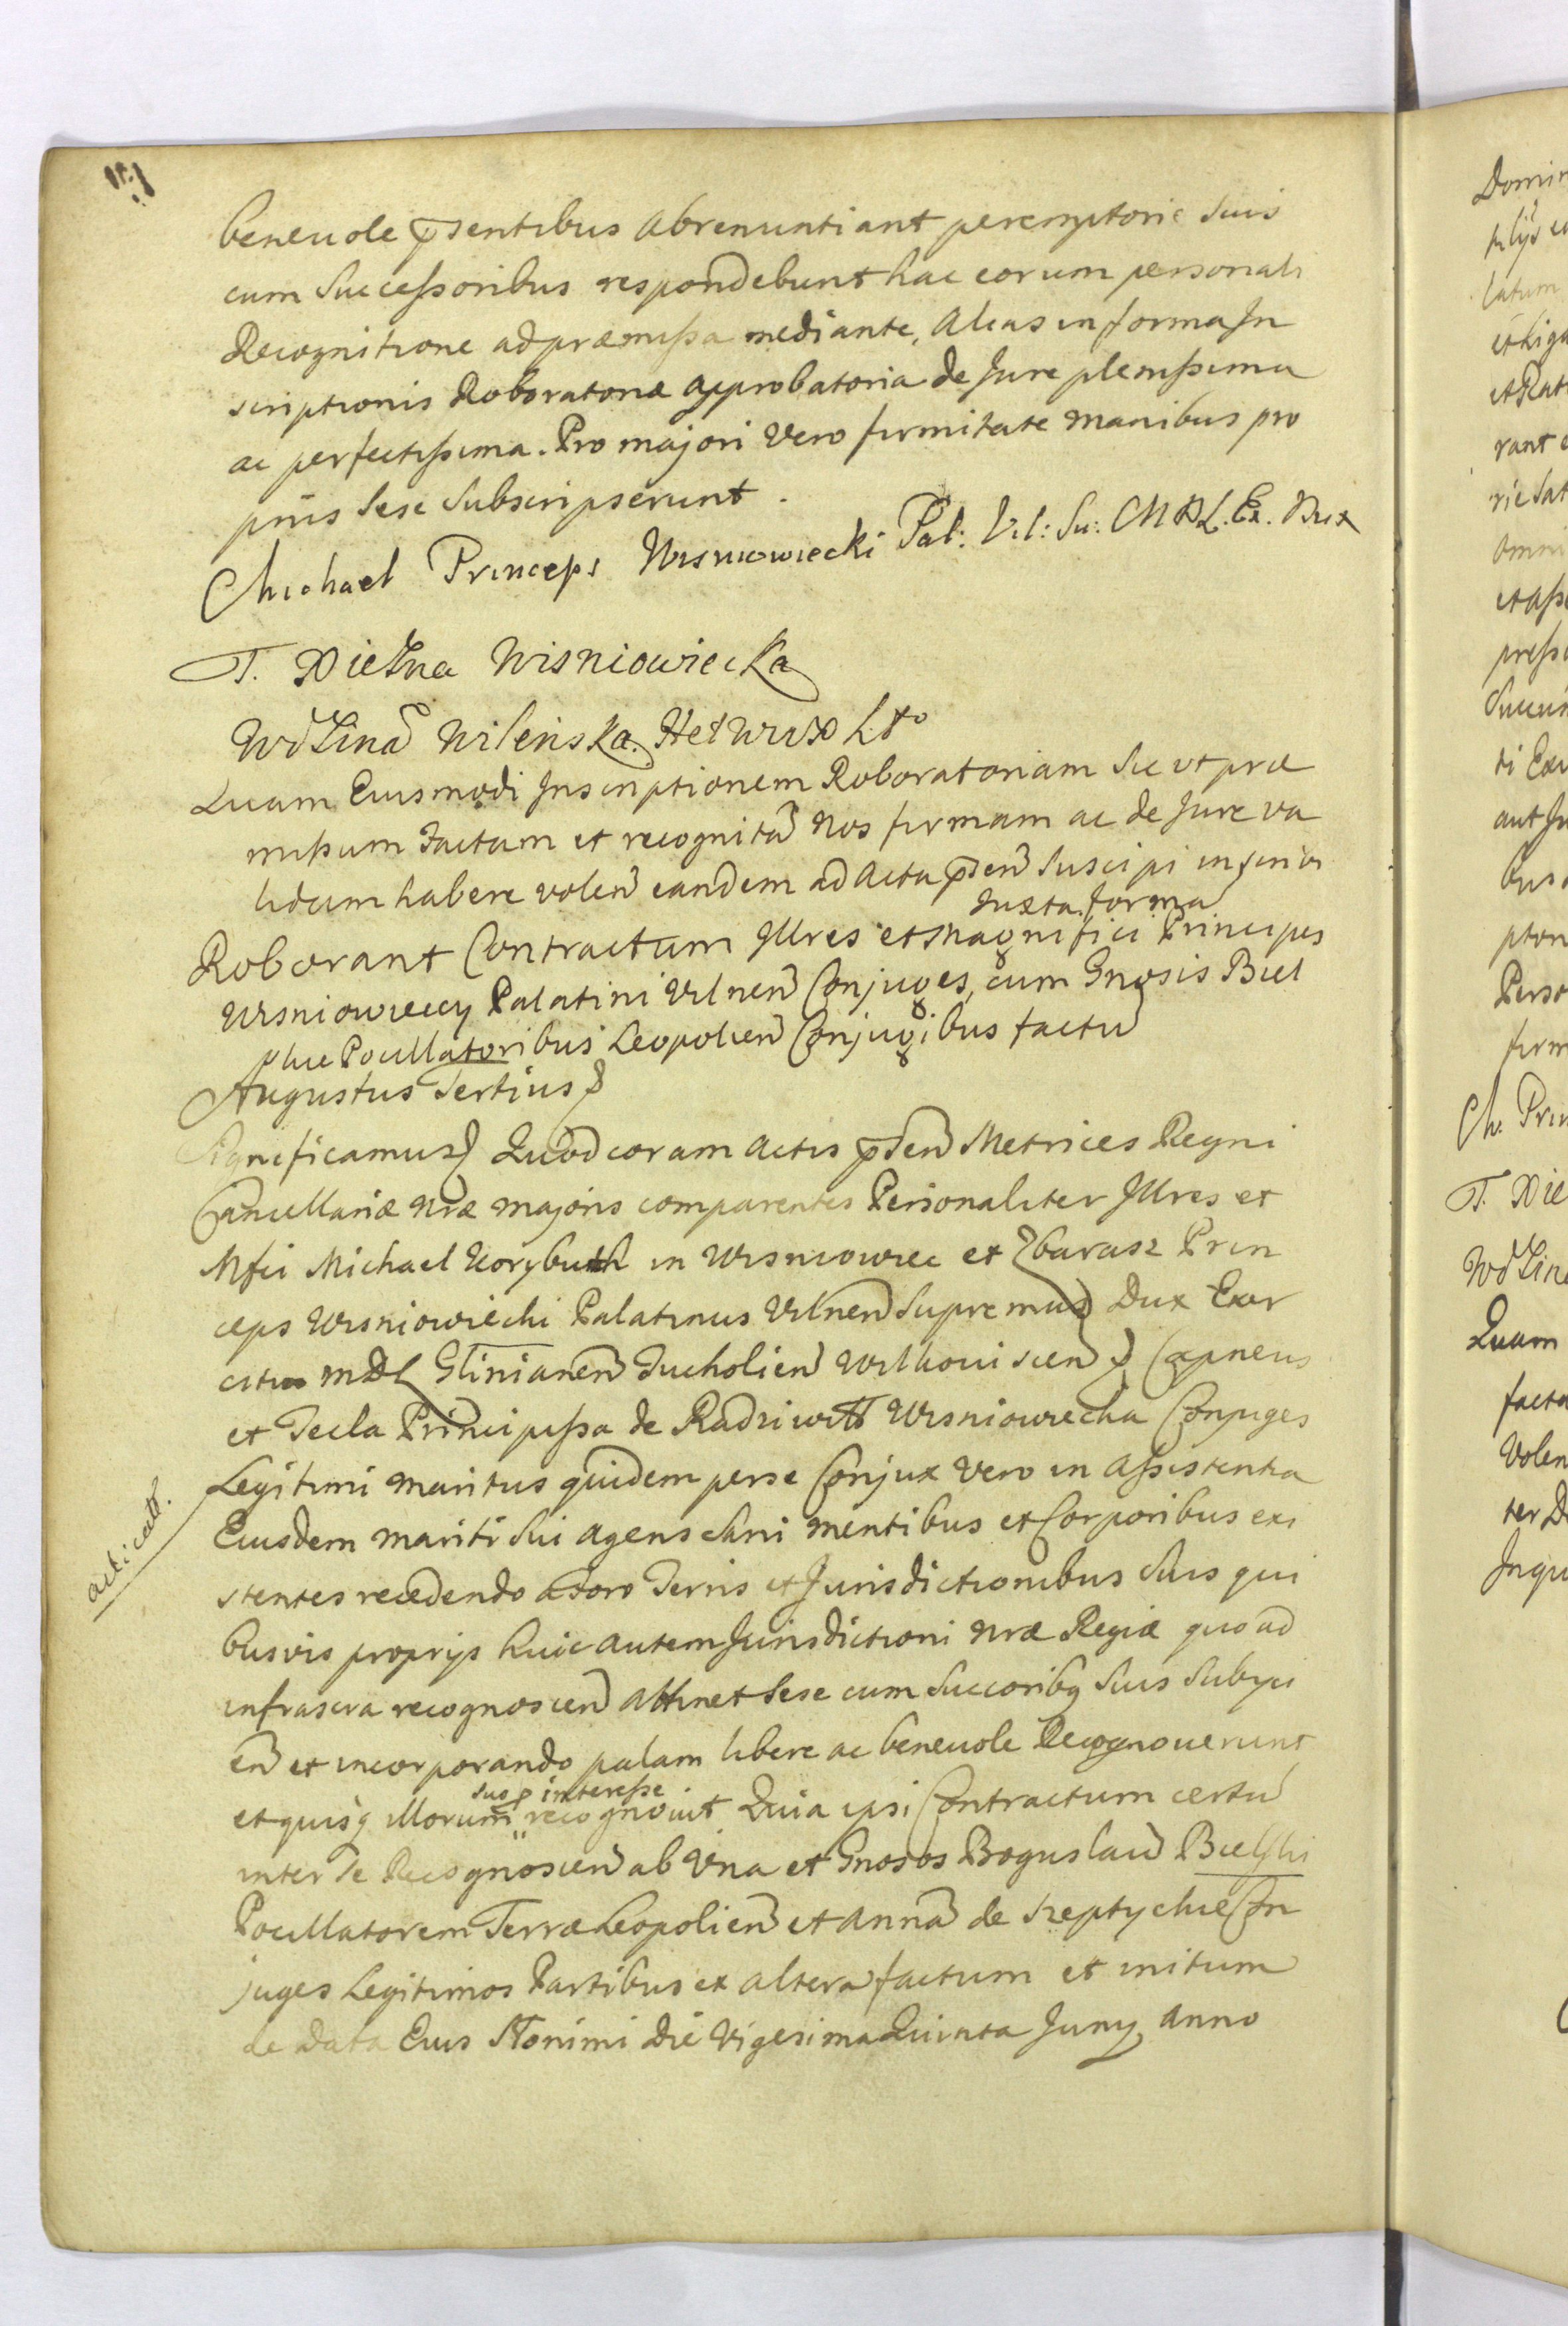 beneuole psentibus abrenuntiant peremptorie Suis
cum Successoribus respondebunt hac eorum personali
Recognitione ad præmissa mediante, alias in forma In
scriptionis Roboratoriæ approbatoria de Jure plenissima
ac perfectissima. Pro majori Vero firmitate manibus pro
priis Sese Subscripserunt.
Michael Princeps Wisniowiecki Pal: Vil: Su: M D L. Ex. Dux
T. Xiężna Wisniowiecka
WdZina Wileńska. Het WWX Lto
Quam Eiusmodi Inscriptionem Roboratoriam Sic ut præ
missum factam et recognitā Nos firmam ac de Jure va
lidam habere volen eandem ad acta psen Suscipi inscribi
Juxta forma
Roborant Contractum Illres et Magnifici Principes
Wisniowieccy Palatini Vilnen Conjuges, cum Gnosis Biel
skie Pocillatoribus Leopolien Conjugibus factū
Augustus Tertius
Significamus Quod coram actis psen Metrices Regni
Cancellariæ Nræ majoris comparentes Personaliter Illres et
Mfici Michael Korybuth in Wisniowiec et Zbarasz Prin
ceps Wisniowiecki Palatinus Vilnen Supremus Dux Exer
citus MDL Glinianen Tucholien Wilkouiscien Capneus
et Tecla Principissa de Radziwiłł Wisniowiecka Conjuges
Legitimi maritus quidem per se Conjux Vero in assistentia
Eiusdem mariti Sui agens Sani mentibus et Corporibus exi
stentes recedendo a foro Terris et Jurisdictionibus Suis qui
busvis proprijs huic autem Jurisdictioni Nræ Regiæ quo ad
infrascra recognoscen attinet Sese cum Succoribq Suis Subyci
en et incorporando palam libere ac beneuole Recognouerunt
suo p interesse
et quisq illorum recognouit Quia ipsi Contractum certū
inter Se Recognoscen ab Vna et Gnosos Boguslaū Bielski
Pocillatorem Terræ Leopolien et Annā de Szeptyckie Con
juges Legitimos Partibus ex altera factum et initum
de Data Eius Słonimi Die Vigesima Quinta Juny Anno
acticatt.